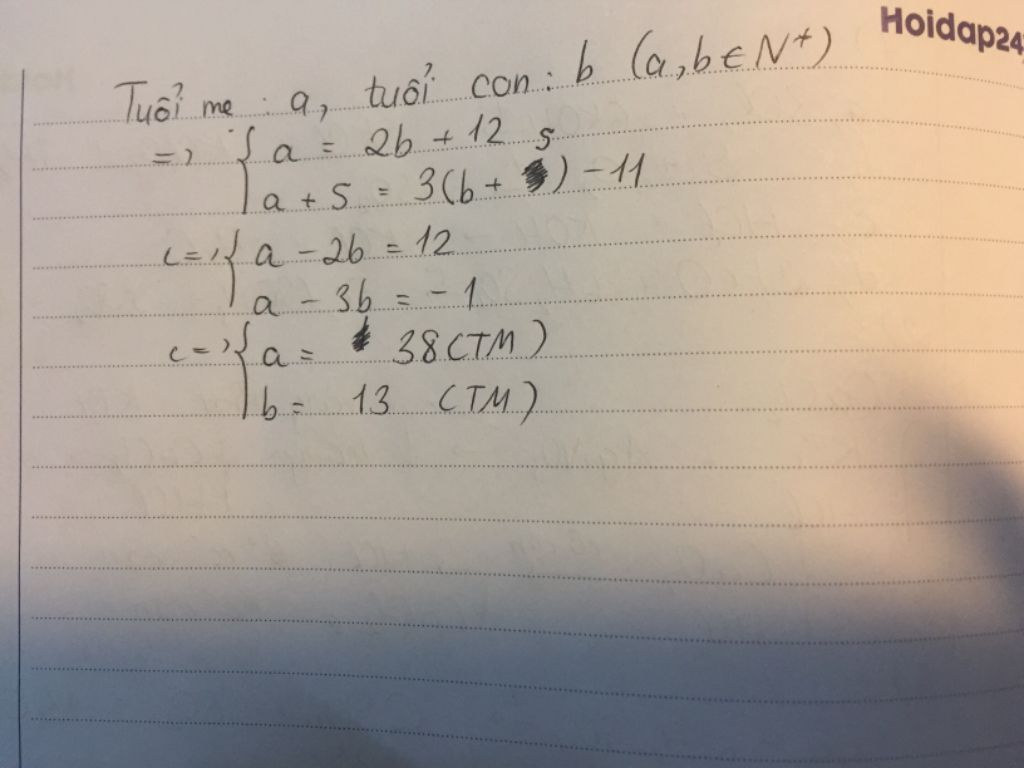 Hoidap24
Tuổi mẹ : a, tuổi con : b (a,b ∈ N*)
=> { a = 2b + 12
a + 5 = 3(b + 5) - 11
<=> { a - 2b = 12
a - 3b = -1
<=> { a = 38 (TM)
b = 13 (TM)